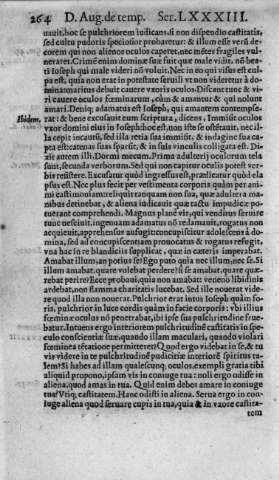 264 D. Aug. de temp. Ser. LXXXIII.
uauit, hoc se pulchriorem iudicans, si non dispendio castitatis,
sed cultu pudoris speciosior probaretur: & illum esse verū de-
corem qui non alienos oculos caperet, nec mētes fragiles vul-
neraret. Crimē enim dominæ suæ fuit quæ male vidit. nō be-
ati Ioseph qui male videri nō voluit. Nec in eo qui visus est cul-
pa est, quia non erat in potestate serui li vt non videretur à do-
Ibidem.
minam amatus est Ioseph, qui amantem contempse-
rat: & bene excusauit eum scriptura, dicens, Immisit oculos
vxor domini eius in Ioseph: hoc est, non iste se ostētauit, nec il-
la cepit incautū, sed illa retia sua immisit, & in sagina sua ca-
pta est: catenas suas sparsit, & in suis vinculis colligata est. Di-
xit autem illi, Dormi mecum. Prima adulterij oculorum tela
sunt, secunda verborum. Sed qui non capitur oculis potest ver-
bis resistere. Excusatur quòd ingressus est, prædicatur quòd ela
psus est. Nec plus fecit per vestimenta corporis quàm per ani-
mi castimoniam: reliquit tanquam non sua, quæ adulteræ ma-
nibus detinebat, & aliena indicauit quæ tactu impudicæ po-
tuerant comprehendi. Magnus planè vir, qui venditus seruire
tunc nesciuit, ingenuam adamatus nō redamauit, rogatus non
acquieuit, apprehensus aufugit: concupiscitur adolescens à do-
mina, sed ad concupiscentiam prouocatus & rogatus refugit,
vna hac in re blandiciis supplicat, quæ in cæteris imperabat.
Amabat illum, an potius se? Ego puto quia nec illum, nec se. Si
illum amabat. quare volebat perdere? si se amabat. quare quæ-
rebat perire? Ecce probaui, quia non amabat: veneno libidinis
ardebat, non flamma charitatis lucebat. Sed ille nouerat vide-
re quod illa non nouerat. Pulchrior erat intus Ioseph quàm fo-
ris, pulchrior in luce cordis quàm in facie corporis: vbi illius
fœminæ oculus nō penetrabat, ibi ipse sua pulchritudine frue-
batur. Intuens ergo interiorem pulchritudinē castitatis in spe-
culo conscientiæ suæ, quando illam maculari, quando violari
fœminæ tētatione permitteret? Quod ergo videbat in se, & tu
vis videre in te pulchritudinē pudicitiæ interiorē spiritus ta-
lem? Si habes ad illam qualescunq; oculos, exempli gratia tibi
aliquid propono, ipsam vis in coniuge tua: noli ergo odisse in
aliena, quod amas in tua. Quid enim debes amare in coniuge
tua? Vtiq; castitatem. Hanc odisti in aliena. Serua ergo in con-
iuge aliena quod seruare cupis in tua, quia & in vxore castita-
tem